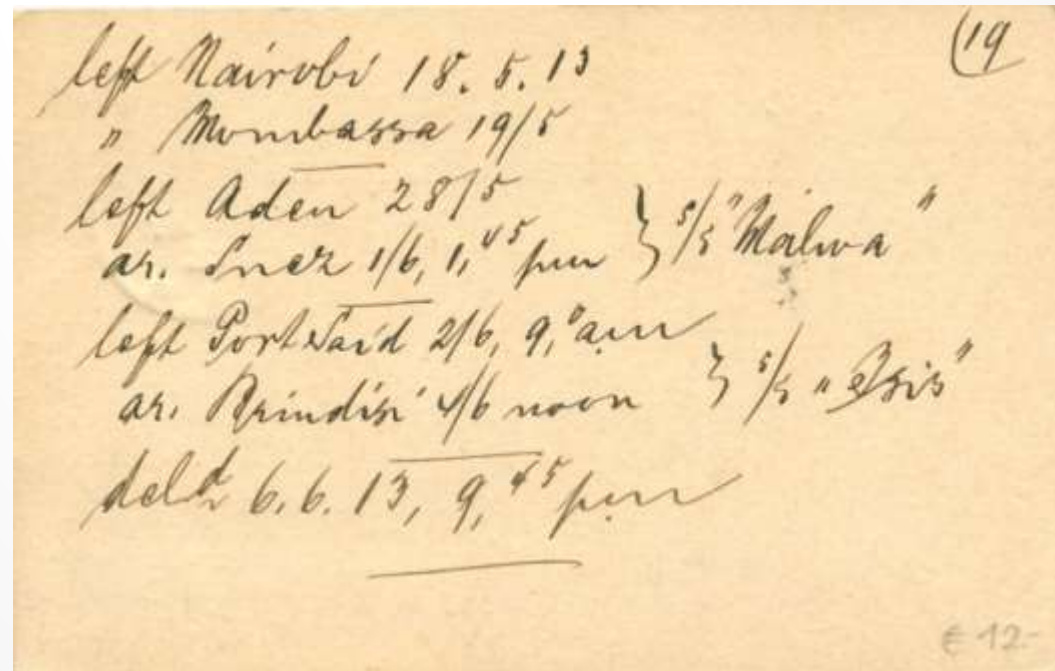 (19
left Nairobi 18. 5. 13
" Mombassa 19/5
left Aden 28/5
ar. Suez 1/6, 1,45 pm } s/s "Malwa"
left Port Said 2/6, 9,0 am
ar. Brindisi 4/6 noon } s/s "Isis"
deld 6. 6. 13, 9,45 pm
€ 12.-